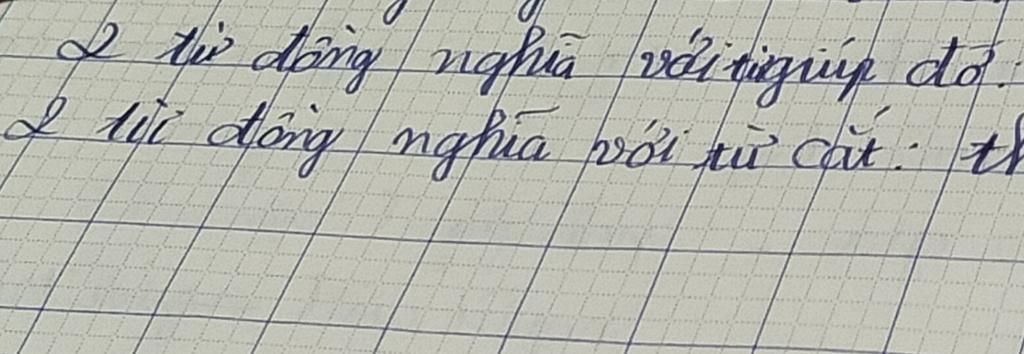 2 từ đồng nghĩa với từ giúp đỡ:
2 từ đồng nghĩa với từ cắt: th